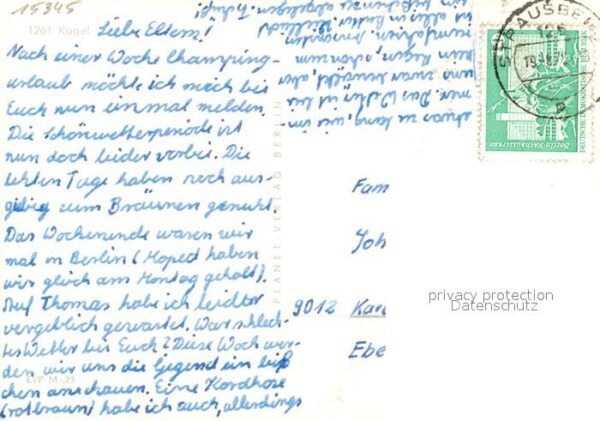 15345
1261 Kagel
Liebe Eltern!
Nach einer Woche Champing-
urlaub möchte ich mich bei
Euch nun einmal melden.
Die Schönwetterperiode ist
nun doch leider vorbei. Die
letzten Tage haben noch aus-
giebig zum Bräunen genutzt.
Das Wochenende waren wir
mal in Berlin (Moped haben
wir gleich am Montag geholt).
Auf Thomas habe ich leider
vergeblich gewartet. War schlech-
tes Wetter bei Euch? Diese Woch wer-
den wir uns die Gegend ein biß
chen anschauen. Eine Kordhose
(rotbraun) habe ich auch, allerdings
EVP M -,25
etwas zu lang, wie im-
mer. Das Wetter ist bei
uns zwar
kein Regen,
PLANET VERLAG BERLIN
STRAUSBERG
Berlin
DEUTSCHE DEMOKRATISCHE
Fam
Joh
9012 Kar
Ebe
privacy protection
Datenschutz